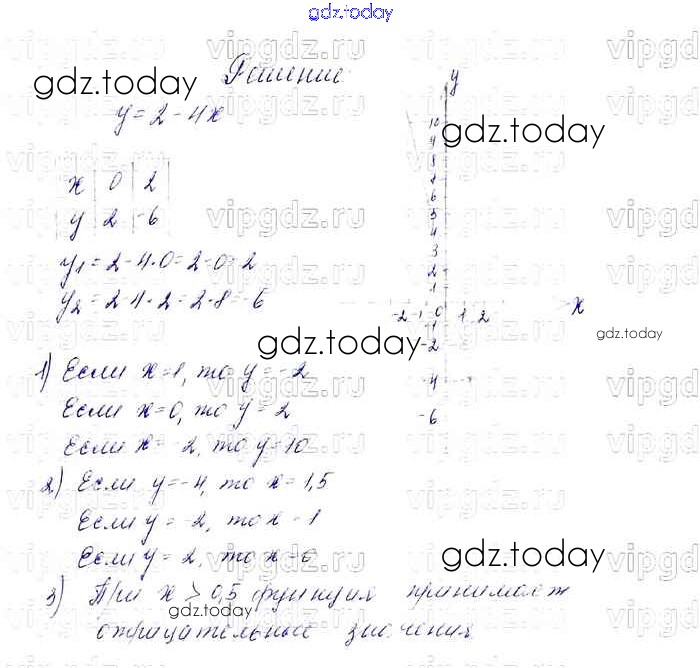 gdz.today
Решение
y = 2 - 4x
x 0 2
y 2 -6
y1 = 2 - 4·0 = 2 - 0 = 2
y2 = 2 - 4·2 = 2 - 8 = -6
1) Если x = 1, то y = -2
Если x = 0, то y = 2
Если x = -2, то y = 10
2) Если y = -4, то x = 1,5
Если y = -2, то x = 1
Если y = 2, то x = 0
3) При x > 0,5 функция принимает
отрицательные значения
y
10
9
8
7
6
5
4
3
2
1
-2 -1 0 1 2 x
-1
-2
-4
-6
gdz.today
gdz.today
gdz.today
gdz.today
gdz.today
gdz.today
vipgdz.ru